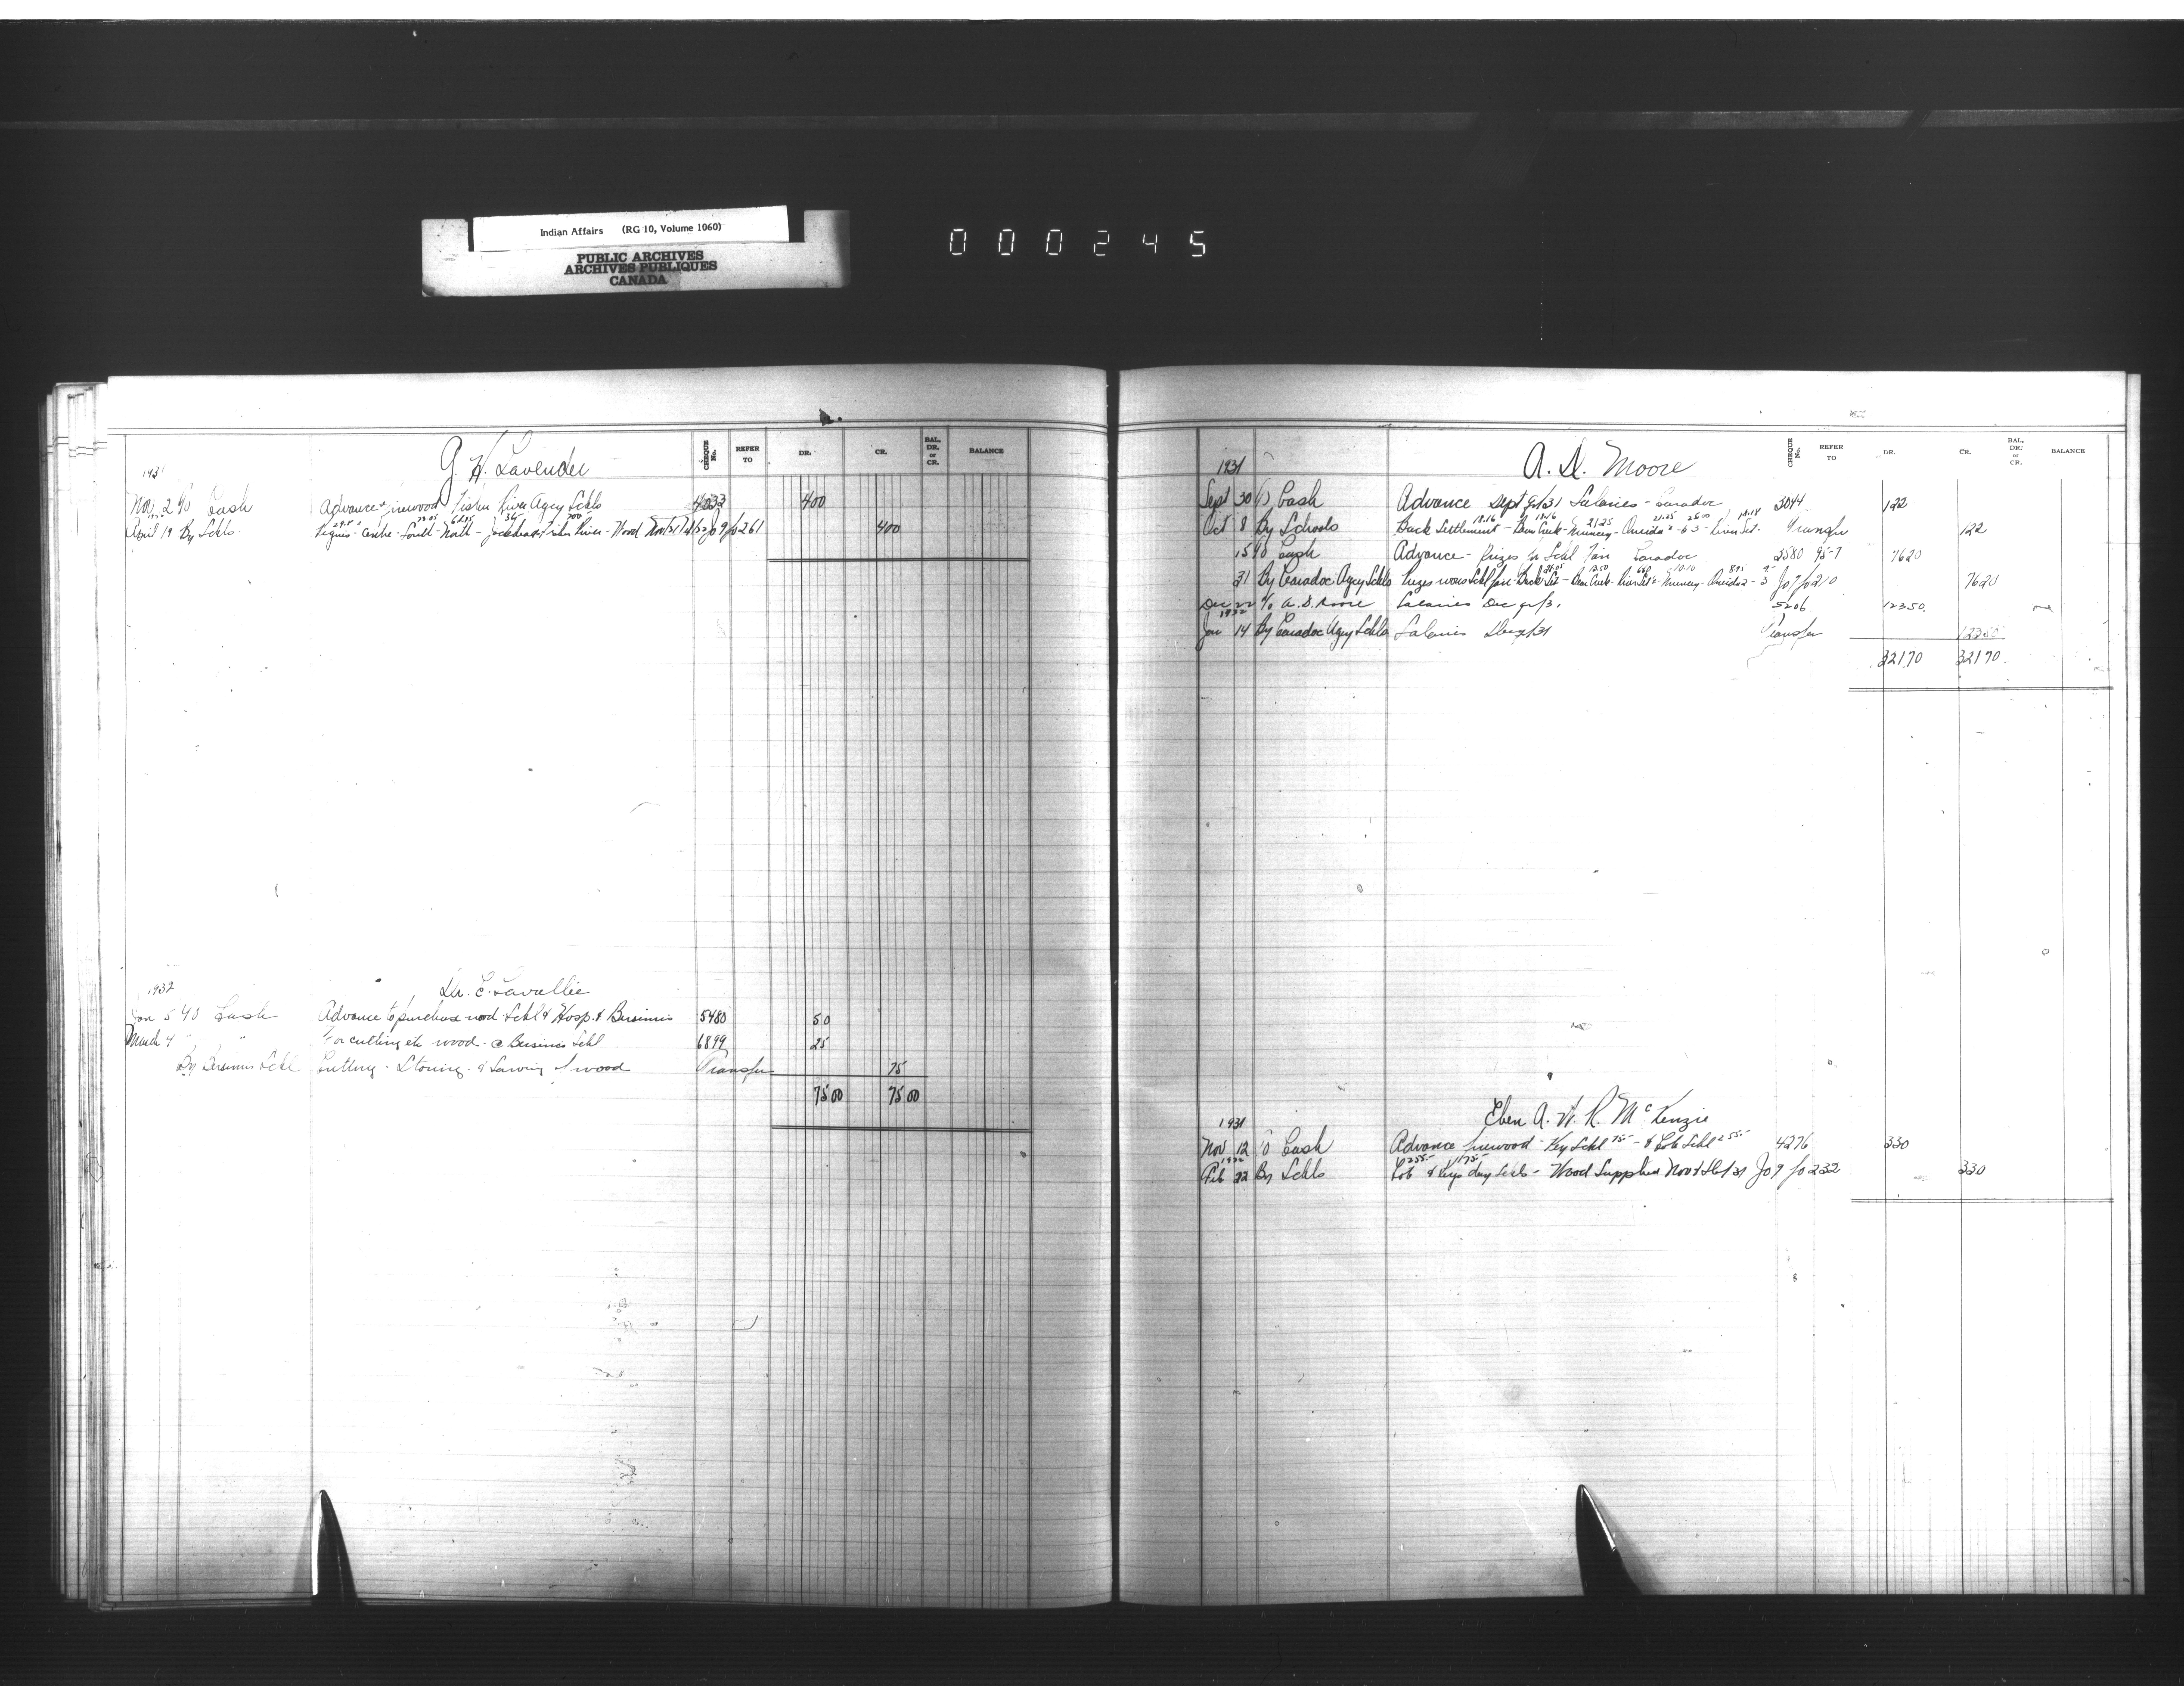 Indian Affairs (RG 10, Volume 1060)
PUBLIC ARCHIVES
ARCHIVES PUBLIQUES
CANADA
000245
G. H. Lavender
CHEQUE No. REFER TO DR. CR. BAL. DR. or CR. BALANCE
1931
Nov 2 To Cash Advance firewood Fisher River Agcy Schls 4033 400
April 19 By Schls Peguis - Centre - South - North - Jackhead - Fisher River - Wood Jo 9 fo 261 400
Dr. E. Lavallie
1932
Jan 5 To Cash Advance to purchase wood Schl & Hosp. & Bersimis 5480 50
March 4 " " For cutting etc wood @ Bersimis Schl 6899 25
By Bersimis Schl Cutting. Storing. & Sawing of wood Transfer 75
75 00 75 00
A. D. Moore
CHEQUE No. REFER TO DR. CR. BAL. DR. or CR. BALANCE
1931
Sept 30 To Cash Advance Sept qr/31 Salaries - Caradoc 3044 122
Oct 8 By Schools Back Settlement - Bear Creek - Muncey - Oneida 2 & 3 - River Set. Transfer 122
15 To Cash Advance - Prizes for Schl Fair Caradoc 76 20
31 By Caradoc Agcy Schls Prizes Schl fair - Back Set - Bear Creek - River Set - Muncey - Oneida 2 - 3 Jo 9 fo 210 76 20
Dec 22 To A. D. Moore Salaries Dec qr/31 5206 123 50
1932
Jan 14 By Caradoc Agcy Schls Salaries Dec qr/31 Transfer 123 50
321 70 321 70
Eben A. W. R. McKenzie
1931
Nov 12 To Cash Advance firewood - Key Schl 75 - & Cote Schl 255 - 4276 330
1932
Feb 22 By Schls Cote & Keys day Schls - Wood Supplied Nov & Dec/31 Jo 9 fo 232 330